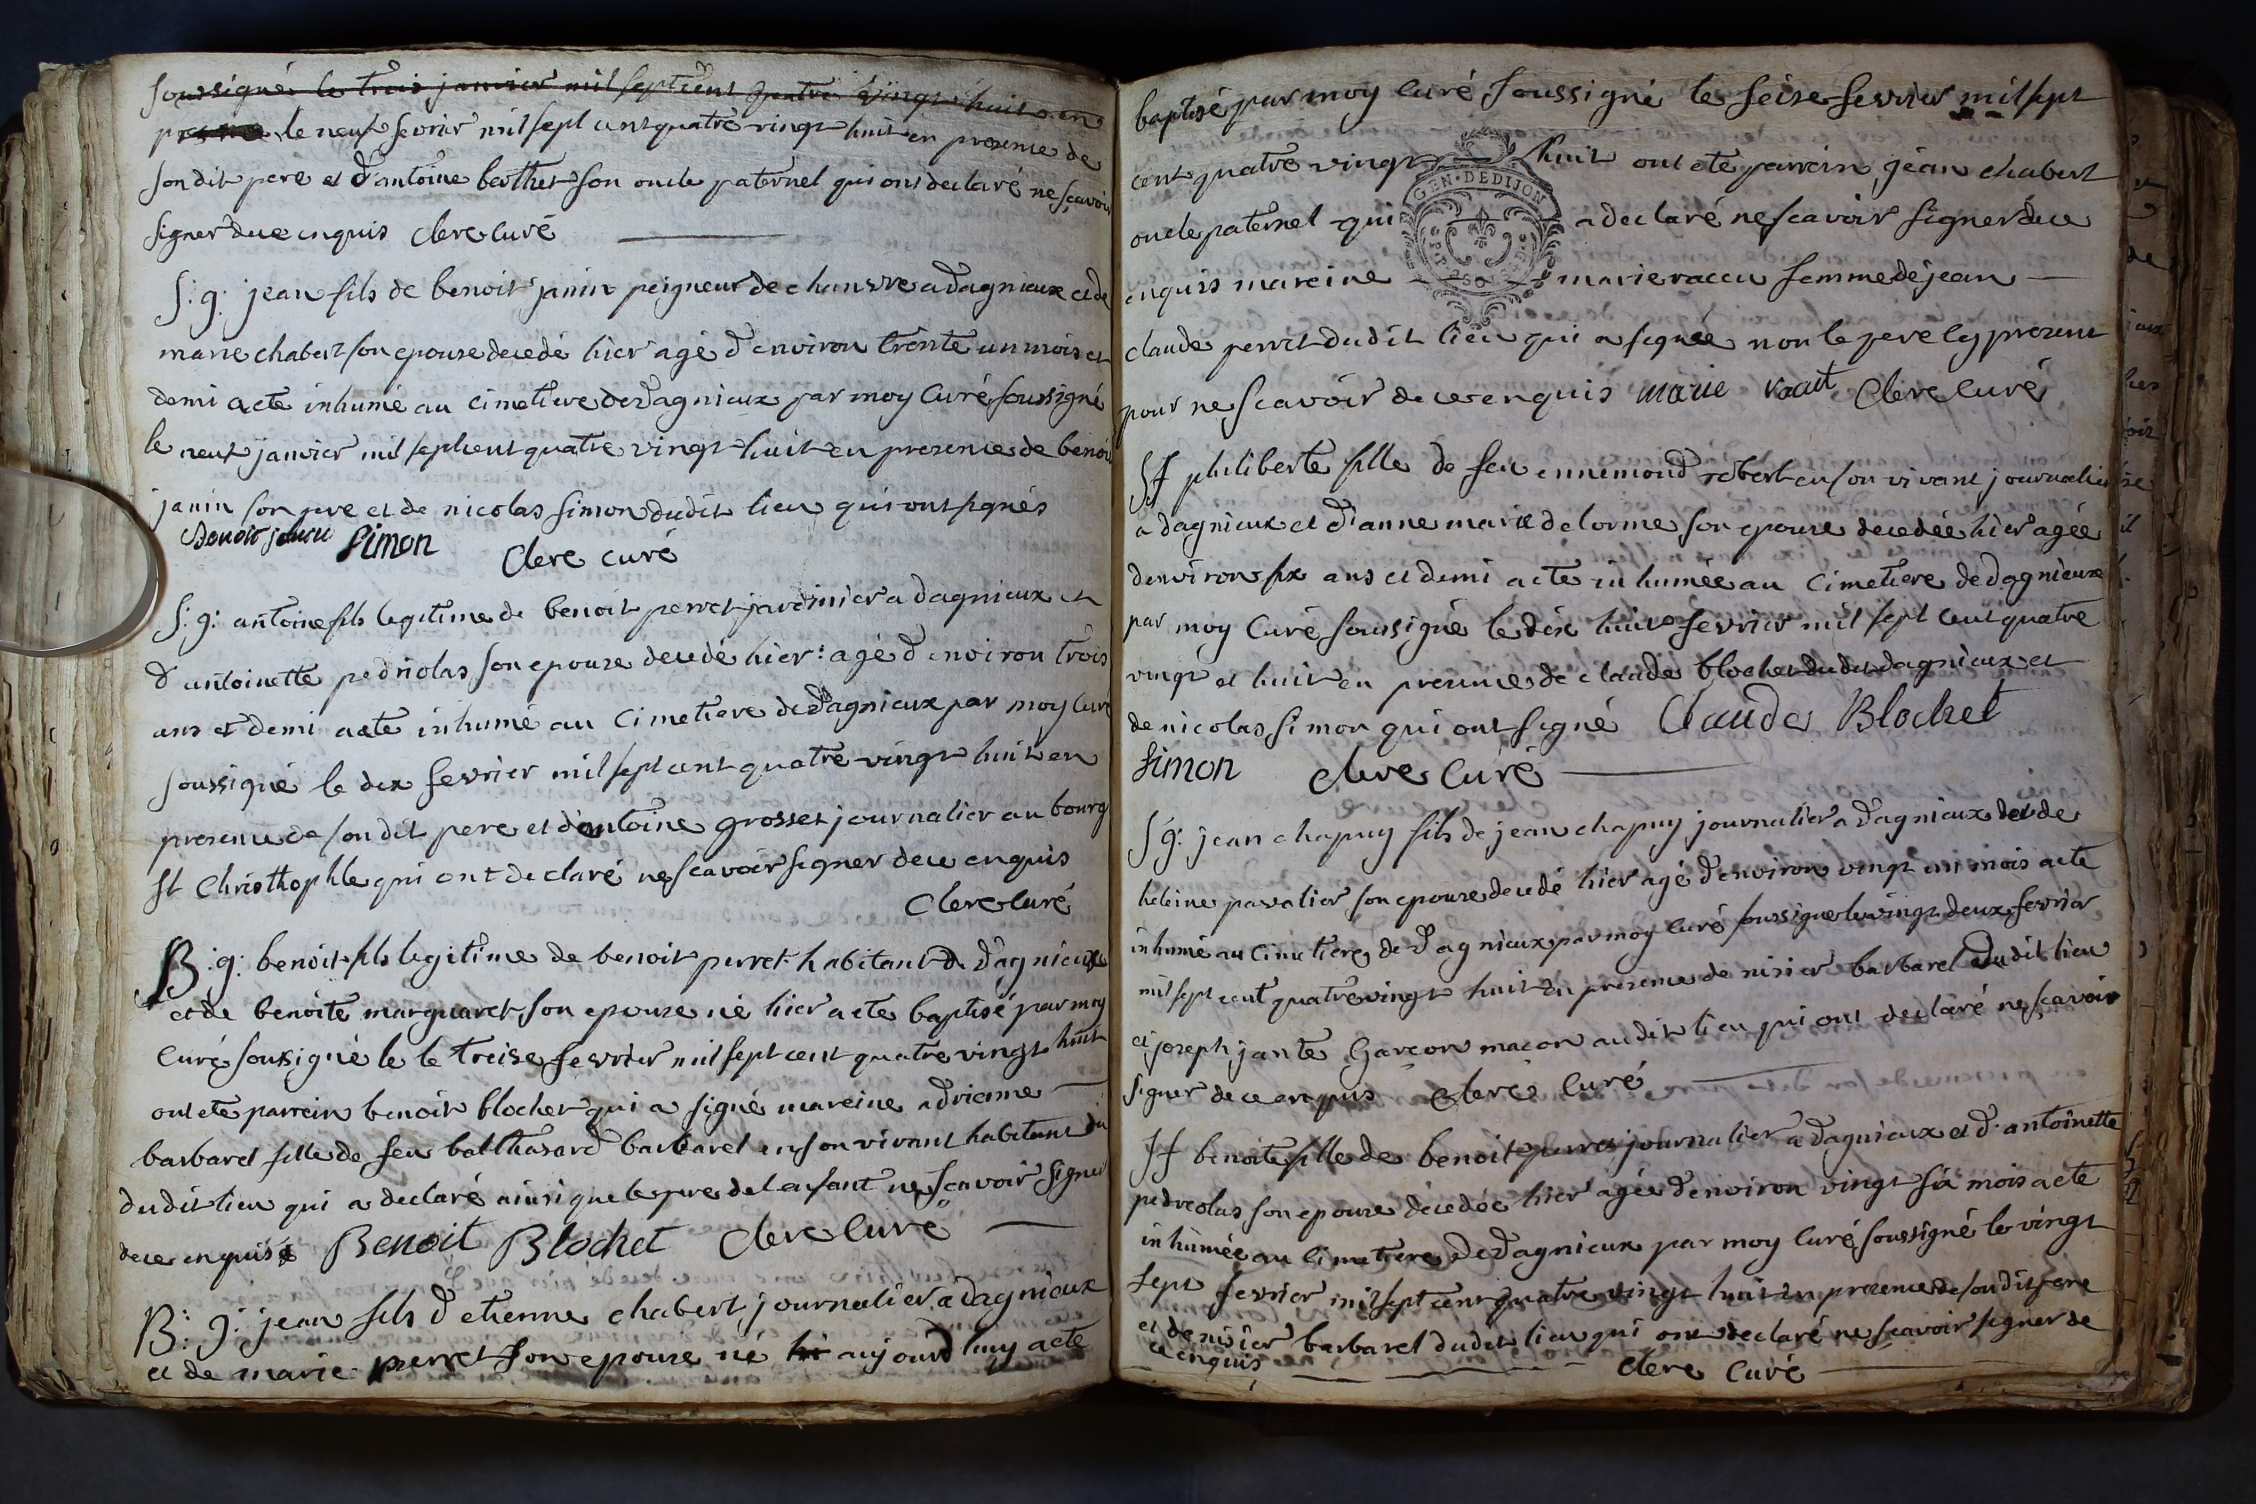 soussigné le trois janvier mil sept cent quatre vingt huit en
presence le neuf fevrier mil sept cent quatre vingt huit en presence de
son dit pere et d'antoine berthet son oncle paternel qui ont declaré ne scavoir
signer de ce enquis Clerc curé
S. g. jean fils de benoit janin peigneur de chanvre a Dagnieux et de
marie chabert son epouse decedé hier agé d'environ trente un mois et
demi a ete inhumé au cimetiere de Dagnieux par moy Curé soussigné
le neuf janvier mil sept cent quatre vingt huit en presence de benoi
janin son pere et de nicolas simon dudit lieu qui ont signés
Benoit Simon Clerc curé
S. g. antoine fils legitime de benoit perret jardinier a dagnieux et
d'antoinette pedriolas son epouse decedé hier agé d'environ trois
ans et demi a ete inhumé au cimetiere de Dagnieux par moy Curé
soussigné le dix fevrier mil sept cent quatre vingt huit en
presence de son dit pere et d'antoine grosset journalier au bourg
St Christhophle qui ont declaré ne scavoir signer de ce enquis
Clerc curé
B. g. benoit fils legitime de benoit perret habitant de Dagnieux
et de benoite marguaret son epouse né hier a ete baptisé par moy
Curé soussigné le le treise fevrier mil sept cent quatre vingt huit
ont ete parrein benoit blochet qui a signé mareine adrienne
barbaret fille de feu balthasard barbaret en son vivant habitant du
dudit lieu qui a declaré ainsi que le pere de l enfant ne scavoir signer
de ce enquis Benoit Blochet Clerc Curé
B. g. jean fils d'etienne chabert journalier a dagnieux
et de marie perret son epouse né hi aujourd huy a ete
baptisé par moy curé soussigné le seise fevrier mil sept
cent quatre vingt huit ont ete parrein jean chabert
GEN. DE DIJON
oncle paternel qui a declaré ne scavoir signer de ce
enquis mareine marie raccu femme de jean
claude perret dudit lieu qui a signée non le pere cy present
pour ne scavoir de ce enquis marie Clerc Curé
S f philiberte fille de feu ennemond robert en son vivant journalier
a dagnieux et d'anne marie delorme son epouse decedée hier agée
d'environ six ans et demi a ete inhumée au cimetiere de dagnieux
par moy Curé soussigné le dix huit fevrier mil sept cent quatre
vingt et huit en presence de claude blochet dudit dagnieux et
de nicolas simon qui ont signé Claude Blochet
Simon Clerc Curé
S g. jean chapuy fils de jean chapuy journalier a Dagnieux et de
heleine pavalier son epouse decedé hier agé d'environ vingt un mois a ete
inhumé au cimetiere de Dagnieux par moy curé soussigné le vingt deux fevrier
mil sept cent quatre vingt huit en presence de nisier barbaret dudit lieu
et joseph jante Garcon macon audit lieu qui ont declaré ne scavoir
signer de ce enquis Clerc Curé
S f benoite fille de benoit perret journalier a dagnieux et d'antoinette
pedreolas son epouse decedée hier agée d'environ vingt six mois a ete
inhumée au cimetiere de Dagnieux par moy Curé soussigné le vingt
sept fevrier mil sept cent quatre vingt huit en presence de son dit pere
et de nisier barbaret dudit lieu qui ont declaré ne scavoir signer de
ce enquis Clerc Curé